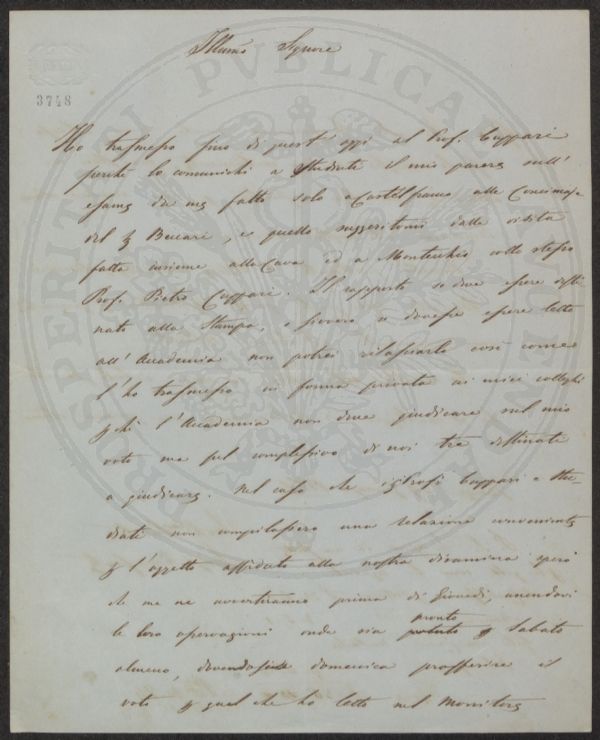 Illumo Signore
3748
Ho trasmesso fino di quest' oggi al Prof. Cuppari
perchè lo comunichi a Studiati il mio parere sull'
esame da me fatto solo a Castelfranco alle Concimaje
del Beccari, e quello suggeritomi dalla visita
fatta insieme alla Cava ed a Montecchio collo stesso
Prof. Pietro Cuppari. Il rapporto se deve essere desti
nato alla Stampa, e se dovesse essere letto
all' Accademia non potrei rilasciarlo così come
l'ho trasmesso in forma privata ai miei colleghi
l'Accademia non deve giudicare sul mio
voto ma sul complessivo di noi tre destinati
a giudicare. Nel caso che Cuppari e Stu-
diati non compilassero una relazione conveniente
l'oggetto affidato alla nostra disamina spero
che me ne avvertiranno prima di Giovedi, unendovi
le loro osservazioni onde sia pronto Sabato
almeno, domenica profferire il
voto quel che ho letto nel Monitore
PROSPERITATI PUBLICAE AUGENDAE